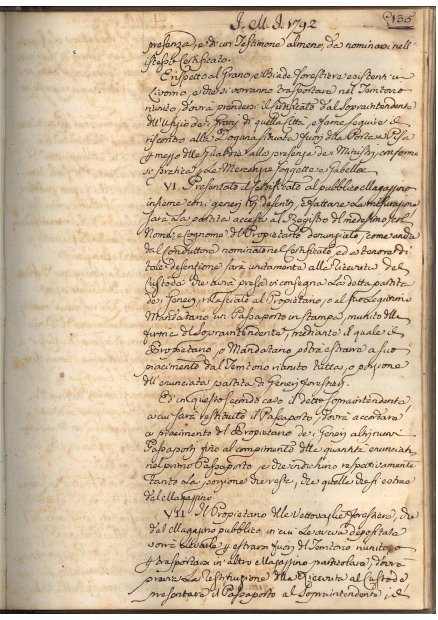 I. M. I. 1792
135
presenza, e di un Testimone almeno, da nominarsi nell'
istesso Certificato.
E rispetto al Grano, e Biade forestiere esistenti in
Livorno, e che si vorranno trasportare nel Territorio
riunito, dovrà prendersi il Certificato dal Sopraintendente
dell'Ufizio dei Grani di quella Città, e farne seguire il
riscontro alla Dogana situata fuori della Porta a Pisa
per mezzo della alla presenza dei Ministri, conforme
si pratica per le Mercanzie soggette a Gabella.
VI. Presentato il Certificato al pubblico Magazzino
insieme con i generi ivi descritti, e fattane la misurazione
sarà la partita accesa al Registro del medesimo col
Nome, e Cognome del Propietario denunziato, come anche
dal conduttore nominato nel Certificato, ed a tenore di
tale descrizione sarà unitamente alla ricevuta del
Custode che avrà preso in consegna la detta partita
di Generi rilasciato al Propietario, o al suo legittimo
Mandatario un Passaporto in stampa, munito della
firma del Sopraintendente, mediante il quale il
Propietario, o Mandatario potrà estrarre a suo
piacimento dal Territorio riunito tutta, o porzione
dell'enunciata partita di Generi forestieri.
Ed in questo secondo caso il detto Sopraintendente,
a cui sarà restituito il Passaporto, dovrà accordare
a piacimento del Propietario de' Generi altri nuovi
Passaporti fino al compimento delle quantità enunciate
nel primo Passaporto, e che indichino respettivamente
tanto la porzione che resta, che quella che si estrae
dal Magazzino
VII. Il Propietario delle Vettovaglie forestiere, che
dal Magazzino pubblico, in cui le aveva depositate
vorrà levarle per estrarle fuori del Territorio riunito, o
per trasportarle in altro Magazzino particolare, dovrà
previa la restituzione della Ricevuta al Custode
presentare il Passaporto al Sopraintendente, il